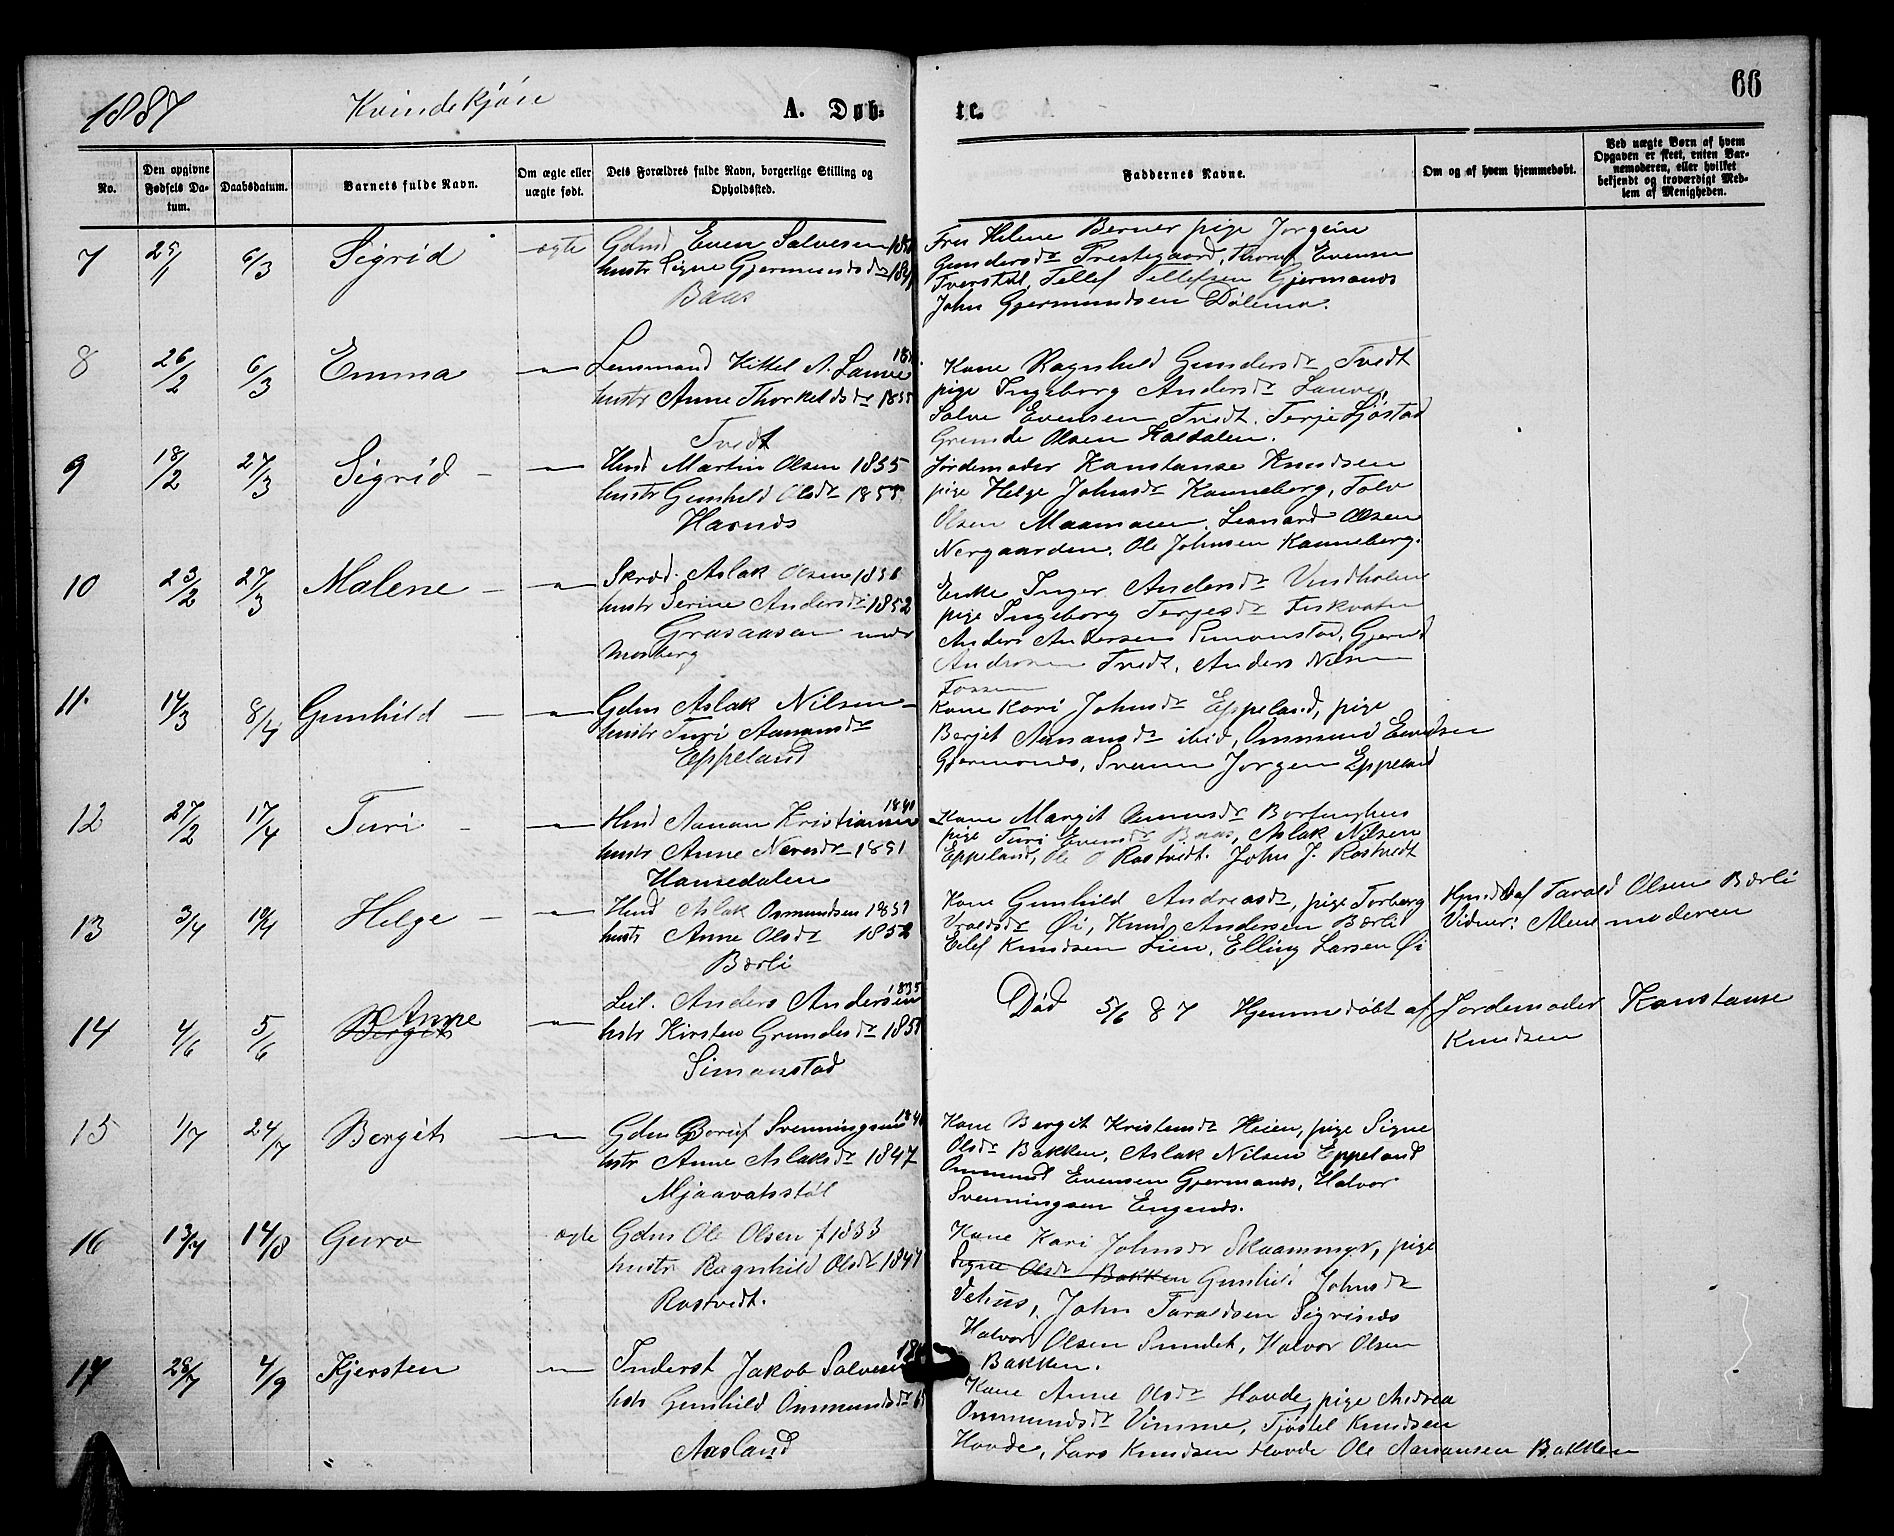 1887 Kvindekjøn A. Døb- te. 66
No.
Den opgivne Fødsels Da-tum.
Daabsdatum.
Barnets fulde Navn.
Om ægte eller uægte født.
Dets Forældres fulde Navn, borgerlige Stilling og Opholdssted.
Faddernes Navne.
Om og af hvem hjemmedøbt.
Ved uægte Børn af hvem Opgaven er skeet, enten Bar-nemoderen, eller hvilket bekjendt og troværdigt Med-lem af Menigheden.
7 25/1 6/3 Sigrid ægte Gdmd Even Salvesen
hustr Signe Gjermundsdr
Baas
Fru Helene Berner pige Jorgine
Gundersdr Prestegaard, Thorut Evensen
Tverstøl, Tellef Tellefsen Gjermonds
John Gjermundsen Dølemo.
8 26/2 6/3 Emma — Lensmand Kittel A. Lauve
hustr Anne Thorkeldsdr 1855
Tvedt
Kone Ragnhild Gundersdr Tvedt
pige Ingeborg Andersdr Lauve,
Salve Evensen Tvedt. Terje Sjøstad
Grunde Olsen Kaldalen.
9 18/2 27/3 Sigrid — — Hmd Martin Olsen 1855
hustr Gunhild Olsdr 1855
Hasnæs
Jordemoder Konstanse Knudsen
pige Helge Johnsdr Kanneberg, Tolv
Olsen Maamoen, Leonard Olsen
Nergaarden. Ole Johnsen Kanneberg.
10 23/2 27/3 Malene — — Skræd. Aslak Olsen 1851
hustr Serine Andersdr 1852
Grasaasen under
Mosberg
Enke Inger Andersdr Vindholmen
pige Ingeborg Terjesdr Fiskvatn
Anders Andersen Simonstad, Gjerud
Andersen Tvedt, Anders Nilsen
Fossen
11. 14/3 8/4 Gunhild — — Gdm Aslak Nilsen
hustr Turi Aanonsdr
Eppeland
Kone Kari Johnsdr Eppeland, pige
Bergit Aanansdr ibid, Ommund Evensen
Gjermonds, Svenn Jorgen Eppeland
12 27/2 17/4 Turi — — Hmd Aanon Kristiansen
hustr Anne Næsdr 1851
Hansedalen
Kone Margit Aanunsdr Borteneghus
pige Turi Evensdr Baas, Aslak Nilsen
Eppeland, Ole O Rostvedt. John J. Rostvedt
13 3/4 10/4 Helge — — Hmd Aslak Osmundsen 1851
hustr Anne Olsdr 1852
Bærli
Kone Gunhild Andreasdr, pige Torberg
Vraalsdr Øi, Knud Andersen Bærli
Eilef Knudsen Lien, Elling Larsen Øi
Hjmdbt af Tarald Olsen Bærli
Vidner: Alene moderen
14 4/6 5/6 Anne
Bergit — Leil. Anders Andersen 1835
hstr Kirsten Grundesdr 1851
Simonstad
Død 5/6 87 Hjemmedøbt af Jordemoder Konstanse
Knudsen
15 1/7 24/7 Bergit — Gdm Boruf Svenningsen
hstr Anne Aslaksdr 1847
Mjaavatsstøl
Kone Bergit Kristensdr Heien, pige Signe
Olsdr Bakken, Aslak Nilsen Eppeland
Ommund Evensen Gjermonds, Halvor
Svenningsen Engends.
16 13/7 14/8 Guro ægte Gdm Ole Olsen f 1833
hustr Ragnhild Olsdr 1841
Rostvedt.
Kone Kari Johnsdr Skaammyr, pige
Signe Olsdr Bakken Gunhild Johnsdr
Vehus, John Taraldsen Sigrinds
Halvor Olsen Sundet, Halvor Olsen
Bakken.
17 28/7 4/9 Kjersten — Inderst Jakob Salvesen
hstr Gunhild Ommundsdr
Aasland
Kone Anne Olsdr Hovde, pige Andrea
Ommundsdr Vimme, Tjøstel Knudsen
Hovde, Lars Knudsen Hovde Ole Aanonsen Bakken